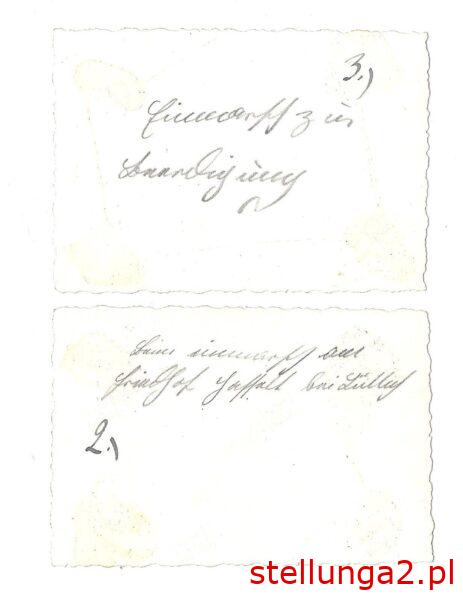 3.)
Einmarsch zur
Beerdigung
Beim einmarsch am
Friedhof Hasselt bei Lüttich
2.)
stellunga2.pl